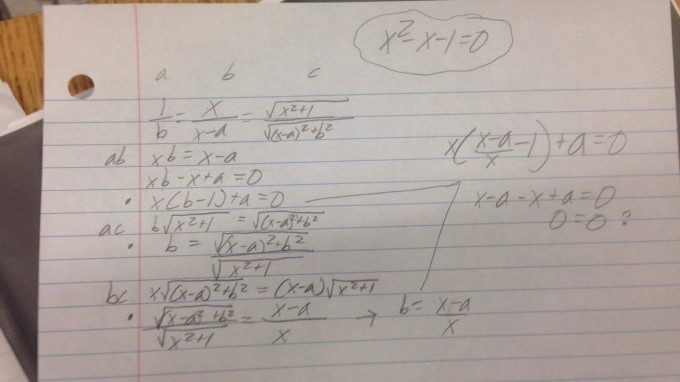 x²-x-1=0
a b c
1/b = x/(x-a) = √(x²+1)/√((x-a)²+b²)
ab xb = x-a
xb-x+a=0
• x(b-1)+a=0
ac b√(x²+1) = √((x-a)²+b²)
• b = √((x-a)²+b²)/√(x²+1)
bc x√((x-a)²+b²) = (x-a)√(x²+1)
• √((x-a)²+b²)/√(x²+1) = (x-a)/x → b = (x-a)/x
x((x-a)/x -1)+a=0
x-a-x+a=0
0=0 ?